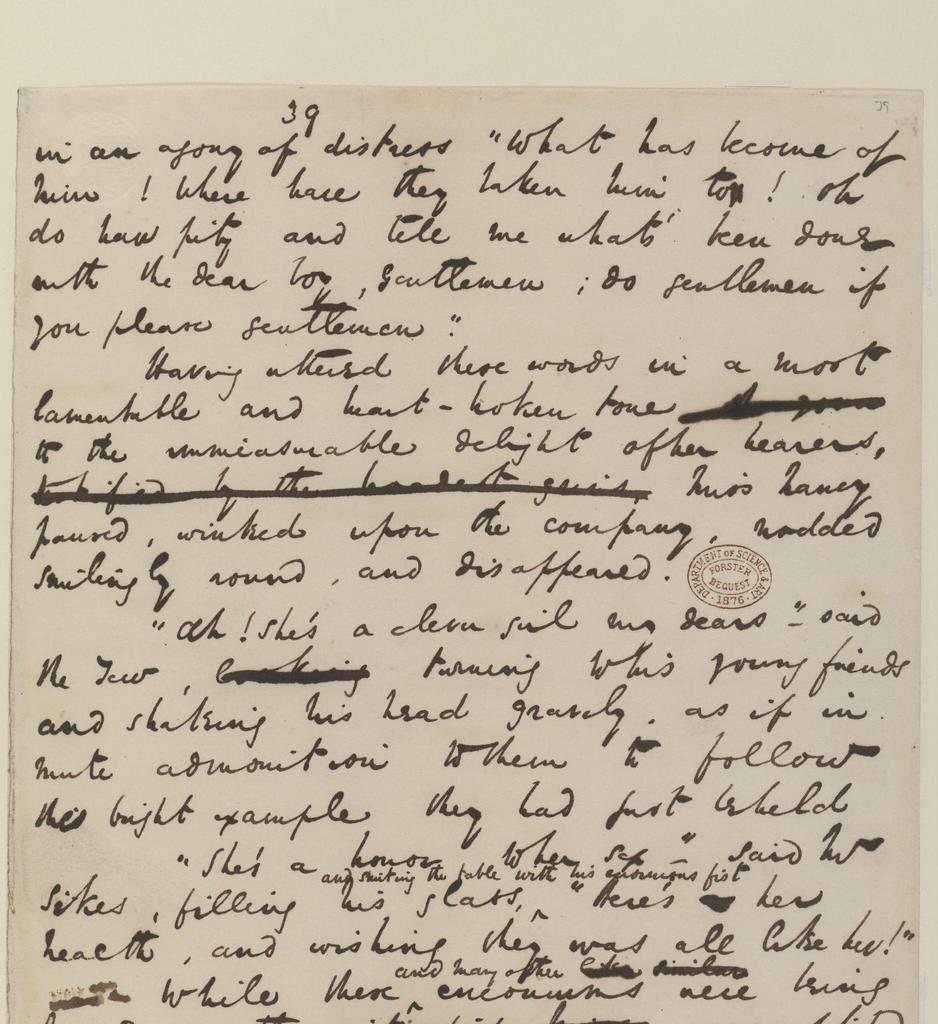 39
39
in an agony of distress "What has become of
him ! Where have they taken him to ! Oh
do have pity and tell me what's been done
with the dear boy, gentlemen ; do gentlemen if
you please gentlemen"
Having uttered these words in a most
lamentable and heart-broken tone
to the immeasurable delight of her hearers,
by the Miss Nancy
paused, winked upon the company, nodded
smilingly round, and disappeared.
DEPARTMENT OF SCIENCE & ART
FORSTER BEQUEST
1876
"Ah! She's a clever girl my dears" – said
the Jew, looking turning to his young friends
and shaking his head gravely, as if in
mute admonition to them to follow
the bright example they had just beheld
"She's a honor to her sex" – said Mr
and smiting the table with his enormous fist
Sikes, filling his glass, "Here's her
health, and wishing they was all like her!"
and many other similar
While these encomiums were being